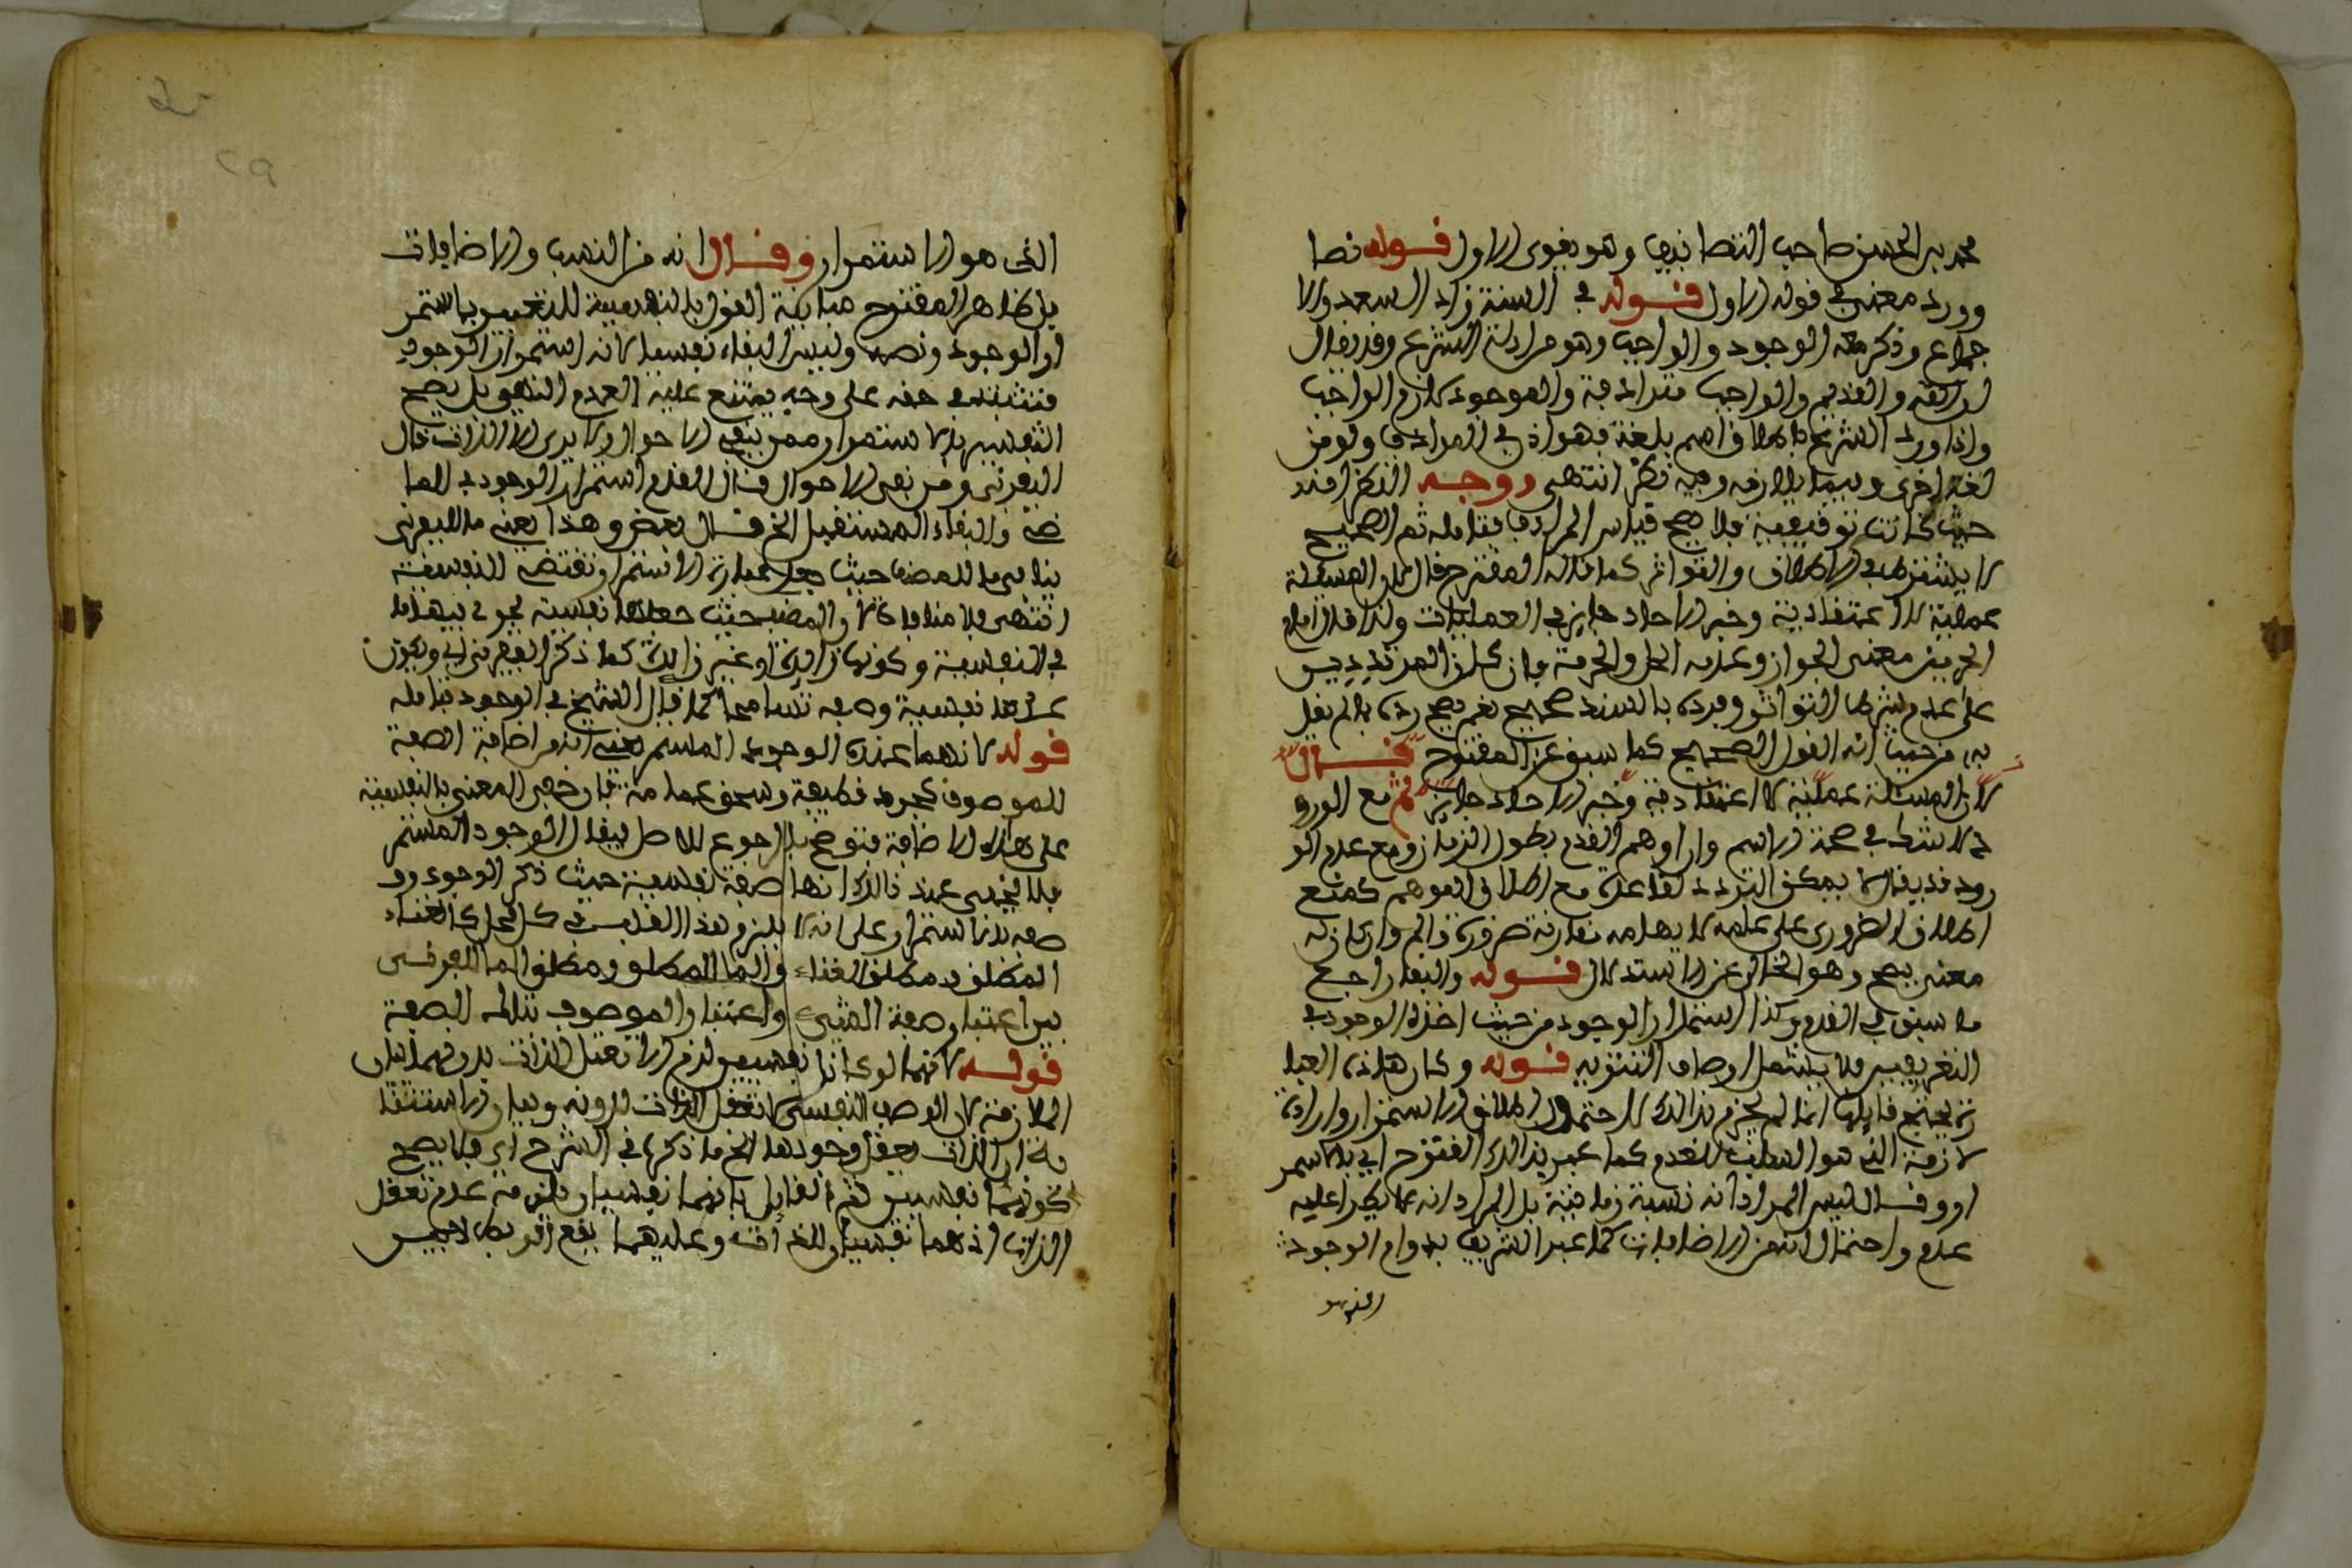 محمد بن الحسن صاحب التصانيف وهو يقوي الاول قوله نصا
وورد معنى في قوله الاول قوله في السنة زاد السعد والا
جماع وذكر معه الوجود والواجب وهو من ادلة الشرع وقد يقال
ان الله والقديم والواجب مترادفة والموجود لازم الواجب
واذا ورد الشرع باطلاق اسم بلغة فهو اذن في المرادف ولو من
لغة اخرى وبما يلازمه وفيه نظر انتهى ووجه النظر انه
حيث كانت توقيفية فلا يصح قياس المرادف فتامله ثم الصحيح
لا يشترط في الاطلاق والتواتر كما قاله المقترح قال لان المسئلة
عملية لا اعتقادية وخبر الاحاد جايز في العمليات ولذا قال امام
الحرمين معنى الجواز وعدمه الحل والحرمة وان كان
على عدم شرط التواتر ووروده بالسند صحيح نعم يصح
به من حيث انه القول الصحيح كما سبق عن المقترح قال
لان المسئلة عملية لا اعتقادية وخبر الاحاد جايز ثم مع الورو
د لا يشترط في صحة الاسم وان اوهم القدم بطول الزمان ومع عدم الو
رود قد يقال لا يمكن التردد لقاعدة مع اطلاق الموهم كمنع
اطلاق الضروري على علمه لايهامه مقارنة ضرورة والم وان كان له
معنى يصح وهو الخالي عن الاستدلال قوله والبقا راجع
ما سبق في القدم وكذا استمرار الوجود من حيث اخذه الوجود في
التعريفين فلا يشمل اوصاف التنزيه قوله وكان هذه العبا
رة يجنح قايلها انما لم يجزم بذالك لاحتمال اطلاق الاستمرار وارادة
لازمه الذي هو السلب للعدم كما عبر بذالك المقترح اي بالاستمر
ار وقال ليس المراد انه نسبة زمانية بل المراد انه لا يطرا عليه
عدم واحتمال انه من الاضافات كما عبر الشريف بدوام الوجود
الذي هو
الذي هو الاستمرار وقال انه من النسب والاضافات
بل ظاهر المقترح مباينة القول بالنفسية للتفسير باستمر
ار الوجود ونصه وليس البقاء نفسيا لانه استمرار الوجود
فتثبت في حقه على وجه يمتنع عليه العدم انتهى بل يصح
التفسير بالاستمرار ممن ينفي الاحوال ولا يرى الا الذات قال
اليفرني ومن نفى الاحوال قال القدم استمرار الوجود في الما
ضي والبقاء المستقبل الخ قال بعض وهذا يعني ما لليفرني
ينافي ما للمص حيث جعل عبارة الاستمرار تقتضي النفسية
انتهى فلا منافاة لان المص حيث جعلها نفسية لم يعرف بينهما
في النفسية وكونها زايدة او غير زايدة كما ذكر اليفرني اي ويكون
عدها نفسية وصفه تسامحا كما قال الشيخ في الوجود فتامله
قوله لانهما عنده الوجود المستمر يعني انه من اضافة الصفة
للموصوف كجرد قطيفة وسحق عمامة فان خفي المعنى بالنفسية
على هذه الاضافة فتوضح بالرجوع للاصل ليقال الوجود المستمر
فلا يخفى عند ذالك انها صفة نفسية حيث ذكر الوجود وو
صفه بالاستمرار على انه لا يلزم هذا القلب في كل محل كالغناء
المطلق ومطلق الغناء والماء المطلق ومطلق الماء للفرق
بين اعتبار صفة الشيء واعتبار الموصوف بتلك الصفة
قوله لانهما لو كانا نفسيين لزم الا تعقل الذات بدونهما بيان
الملازمة لان الوصف النفسي لا تعقل الذات بدونه وبيان الاستثنا
ية ان الذات يعقل وجودها الخ ما ذكره في الشرح اي فلا يصح
كونهما نفسيين نعم القايل بانهما نفسيان يلتزم عدم تعقل
الذات اذ هما نفسيان للذات وعليهما يقع